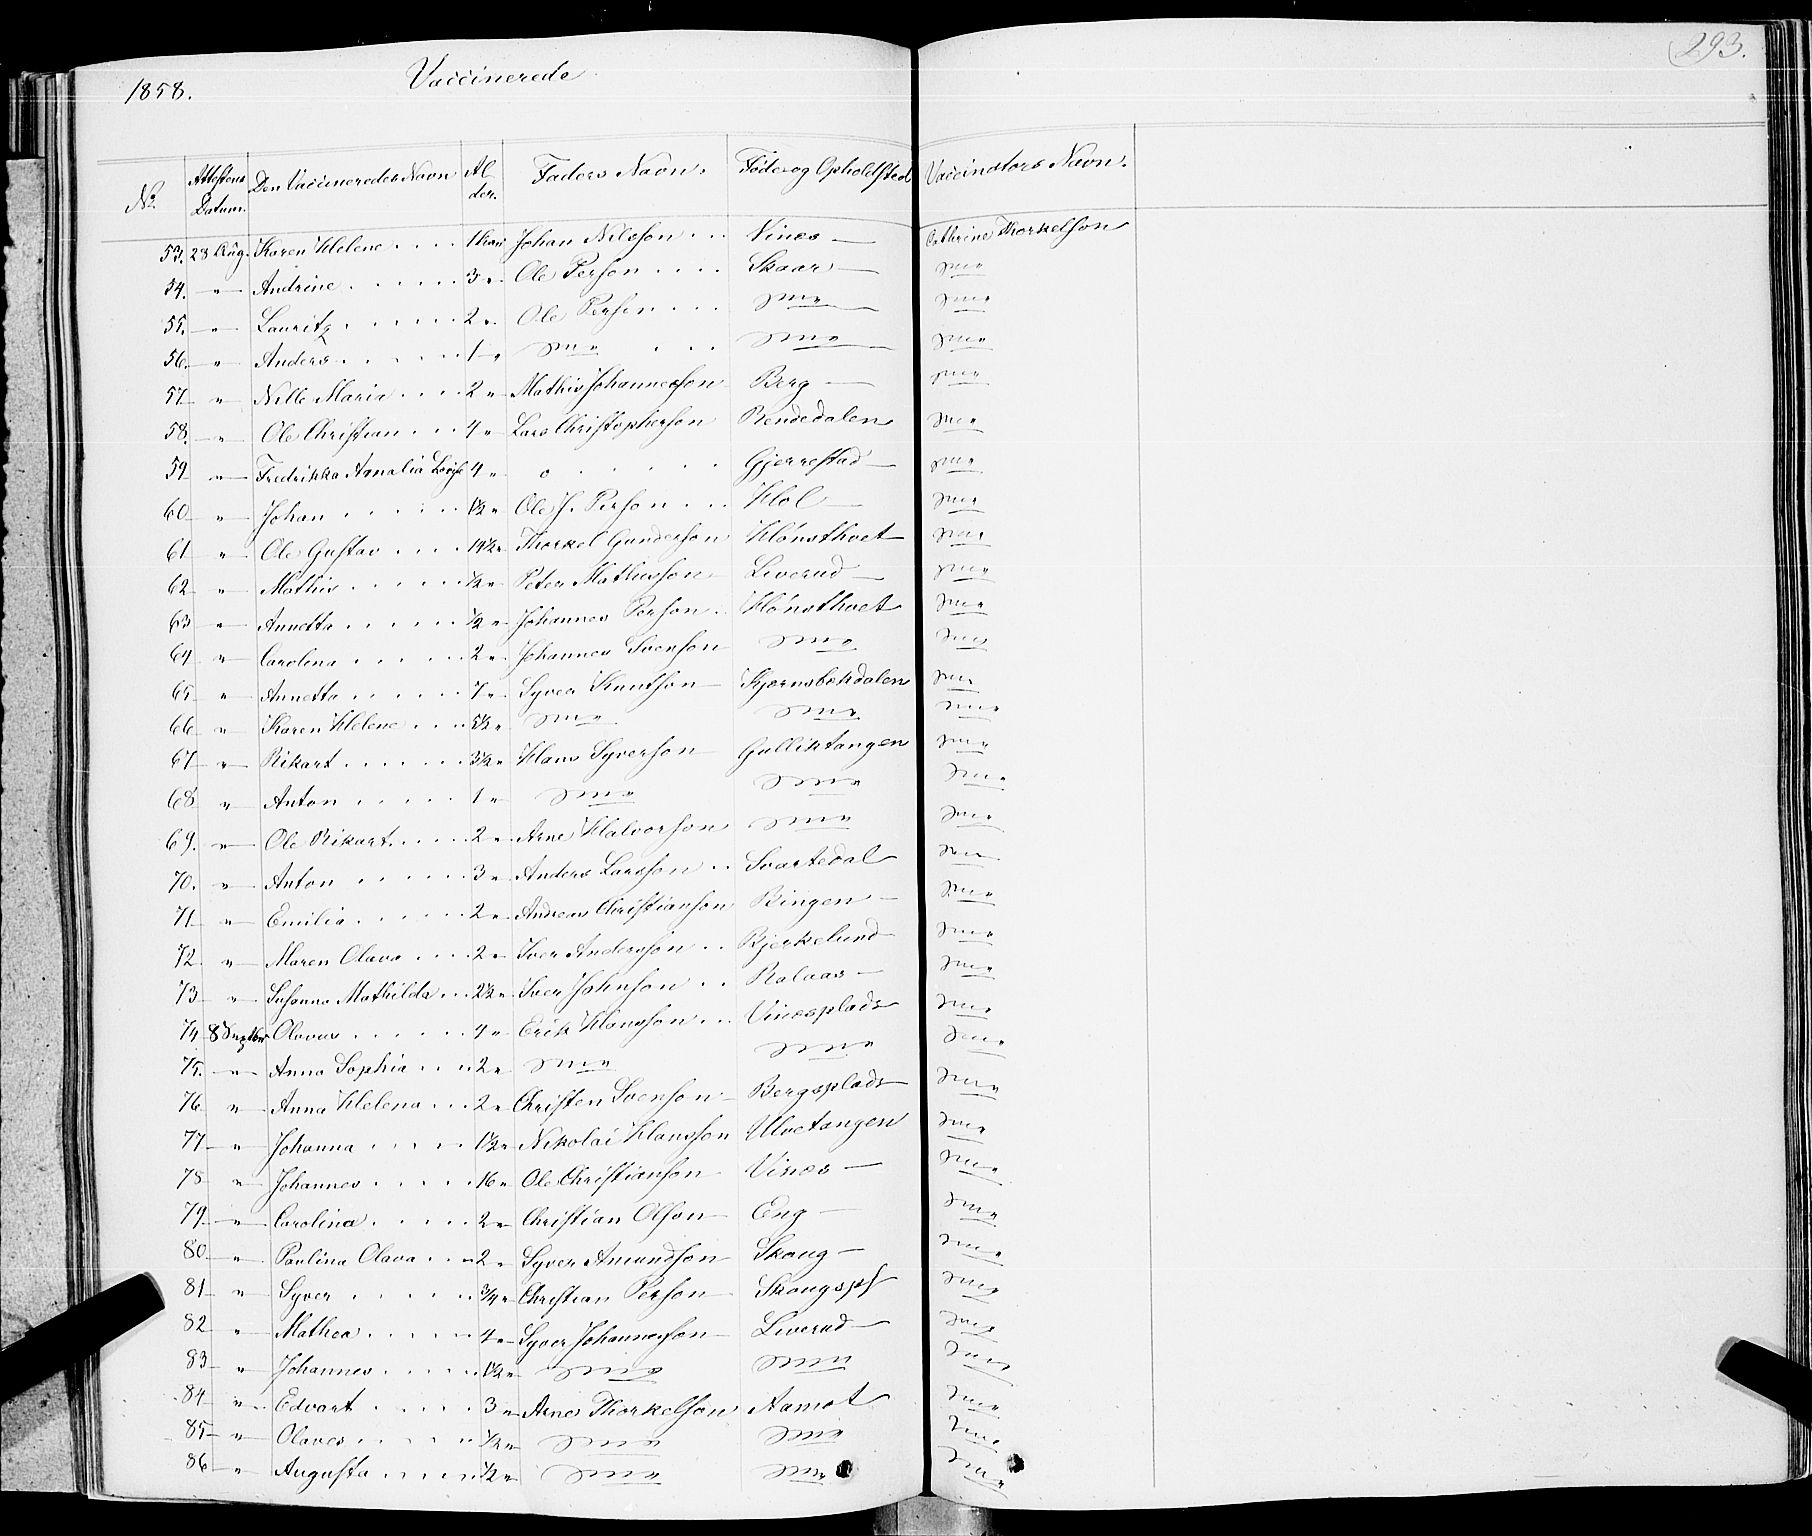 293.
1858. Vaccinerede
No. Attestens Datum. Den Vaccineredes Navn Al- der. Faders Navn. Føde- og Opholdsted Vaccinators Navn.
53. 28 Aug. Karen Helene .... 1 Johan Nilsson ... Vines — Cathrine Thorkelson
54. " Andrine ...... 3 " Ole Person .... Skaar —
55. " Lauritz ...... 2 " Ole Person ...
56. " Anders ...... 1 "
57 " Nille Maria .... 2 " Mathis Johannesson Berg —
58. " Ole Christian ... 4 " Lars Christopherson Bendedalen
59 " Fredrikka Amalia Lovise 4 " o ...... Gjerrestad —
60 " Johan ...... 1½ " Ole J. Person ... Hol —
61 " Ole Gustav .... 14½ " Thorkel Gunderson Hønsthvet
62 " Mathis ...... ½ " Peter Mathisson Liverud —
63 " Annetta ...... ½ " Johannes Person . Hønsthvet
64 " Carolina ...... 2 " Johannes Svenson
65 " Annetta ...... 7 " Syver Knutson — Kjernsbækdalen
66 " Karen Helene ... 5½ "
67 " Rikart ...... 3½ " Hans Syverson Gulliktangen
68 " Anton ...... 1 "
69. " Ole Rikart ..... 2 " Arne Halvorson
70. " Anton ...... 3 " Anders Larsson .. Svartedal
71 " Emilia ...... 2 " Andreas Christianson Bingen —
72 " Maren Olava .... 2 " Iver Anderson .. Bjerkelund
73 " Susanna Mathilda ... 2½ " Iver Johnson .. Ralaas —
74 8 Olavus ...... 4 " Erik Hansson ... Vinesplads
75. " Anna Sophia .... 2 "
76 " Anna Helena ... 2 " Christen Svenson Bergsplads
77 " Johanna ...... 1½ " Nikolai Hansson Ulvetangen
78 " Johannes ...... 16 " Ole Christianson Vines —
79 " Carolina ...... 2 " Christian Olson Eng —
80 " Paulina Olava ... 2 " Syver Amundson Skoug —
81 " Syver ...... ¾ " Christian Person Skougspl
82 " Mathea ...... 4 " Syver Johannesson Liverud —
83 " Johannes ..... 1½ "
84 " Edvart ...... 3 " Arnes Thorkelson Aamot
85 " Olaves ...... ½ "
86 " Augusta ...... ½ "